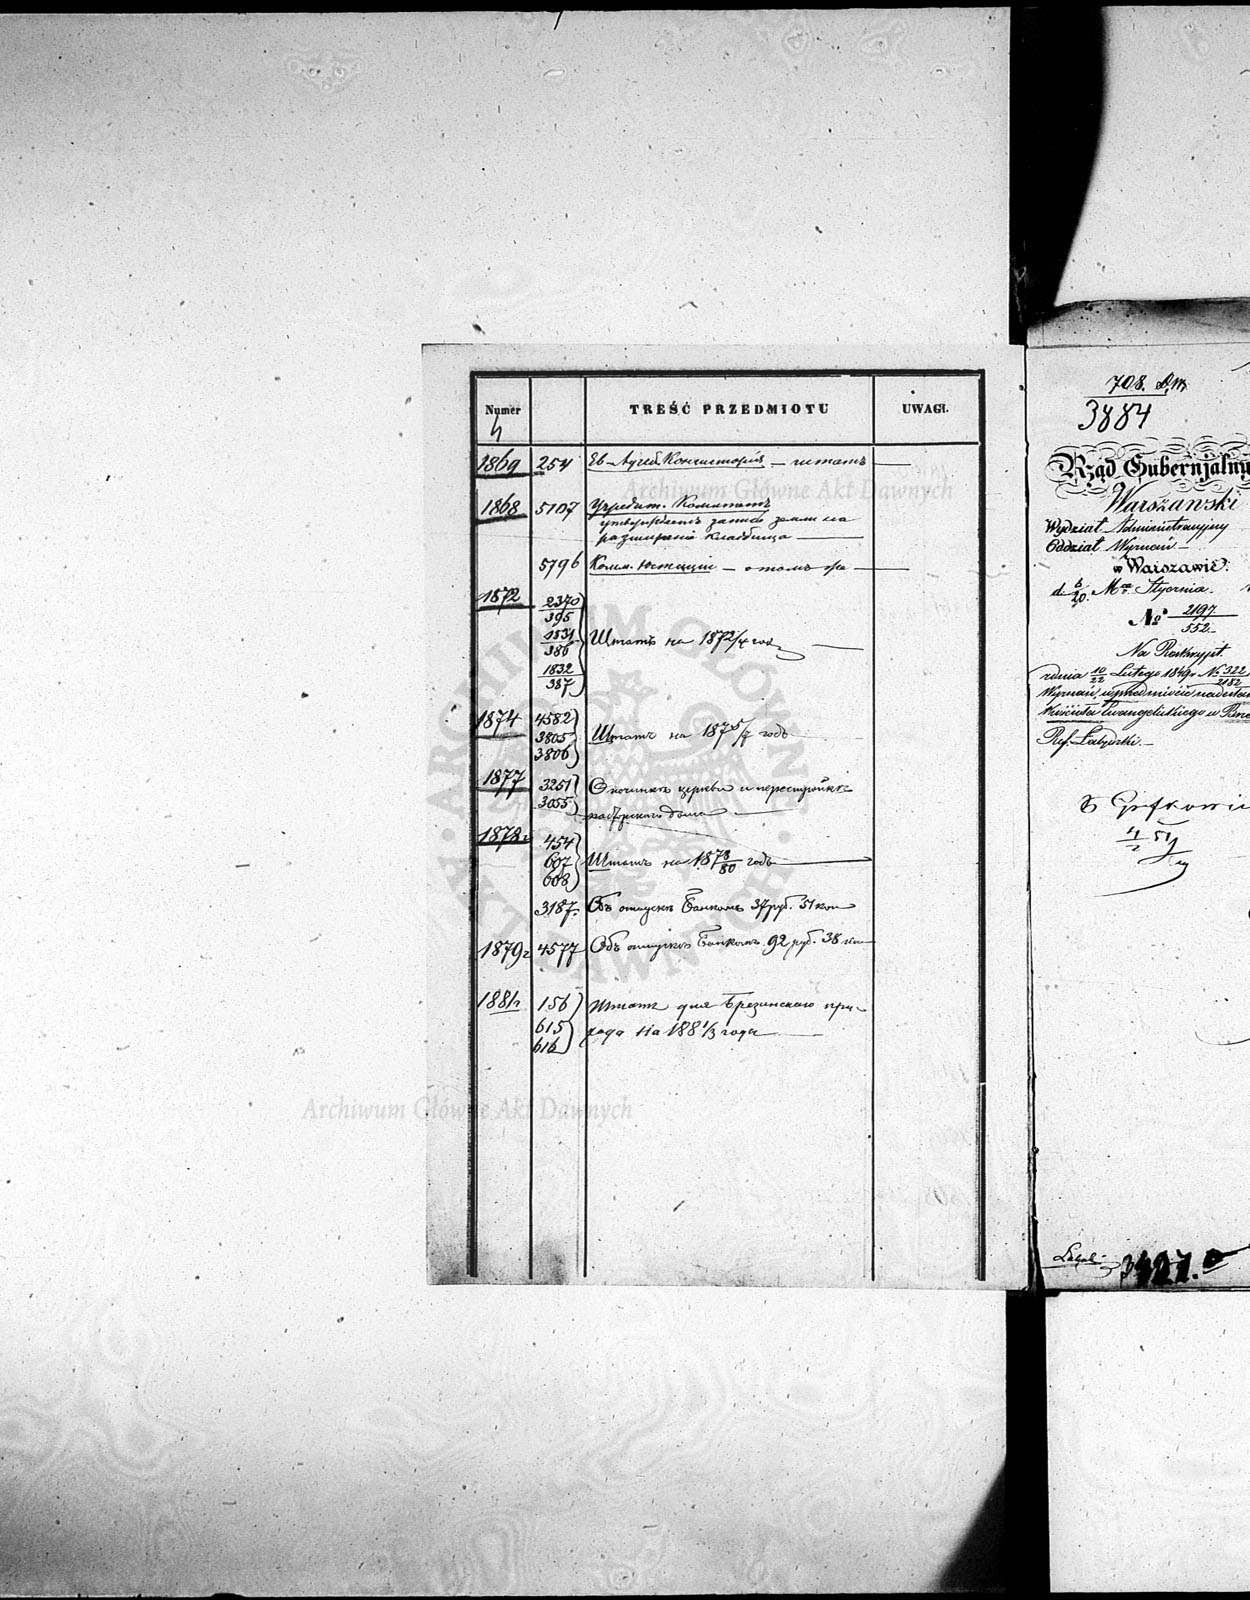 Numer
TREŚĆ PRZEDMIOTU
UWAGI.
1869 254 Ев-Аугсб. Консисторія — штатъ
1868 5107 Учредит. Комитетъ
утвердилъ записъ земли на
разширеніе кладбища
5796 Комм. Юстиціи — о томъ же
1872 2370/395
1831/386 Штатъ на 1872/4 год
1832/387
1874 4582
3805 Штатъ на 1875/7 годъ
3806
1877 3251 О починкѣ церкви и перестройкѣ
3055 пасторскаго дома
1878г 454
607 Штатъ на 1878/80 годъ
608
3187. Объ отпускѣ Банкомъ 37 руб. 51 коп
1879г 4577 Объ отпускѣ Банкомъ 92 руб. 38 коп
1881г 156 Штатъ для Брезинскаго при-
615 хода на 1881/3 года
616
708.
3884
Rząd Gubernjalny
Warszański
Wydział Administracyjny
Oddział Wyznań
w Warszawie.
d. 8/20. Mca Stycznia.
No 2197/552
Na Reskrypt.
z dnia 10/22 Lutego 1849 r No 322/2182
Wyznań, w przedmiocie
Kościoła Ewangelickiego w
Ref.
Archiwum Główne Akt Dawnych
Archiwum Główne Akt Dawnych
ARCHIWUM GŁÓWNE AKT DAWNYCH